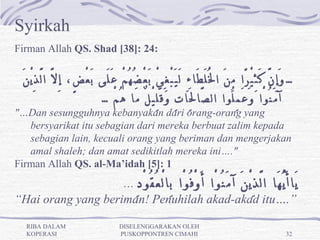 Syirkah
Firman Allah QS. Shad [38]: 24:
...وَإِنَّ كَثِيْرًا مِنَ الْخُلَطَاءِ لَيَبْغِيْ بَعْضُهُمْ عَلَى بَعْضٍ، إِلاَّ الَّذِيْنَ
آمَنُوْا وَعَمِلُوا الصَّالِحَاتِ وَقَلِيْلٌ مَا هُمْ ...
"…Dan sesungguhnya kebanyakan dari orang-orang yang
bersyarikat itu sebagian dari mereka berbuat zalim kepada
sebagian lain, kecuali orang yang beriman dan mengerjakan
amal shaleh; dan amat sedikitlah mereka ini…."
Firman Allah QS. al-Ma'idah [5]: 1
يَاأَيُّهَا الَّذِيْنَ آمَنُوْا أَوْفُوْا بِالْعُقُوْدِ ...
"Hai orang yang beriman! Penuhilah akad-akad itu…."
RIBA DALAM
KOPERASI
DISELENGGARAKAN OLEH
PUSKOPPONTREN CIMAHI
32